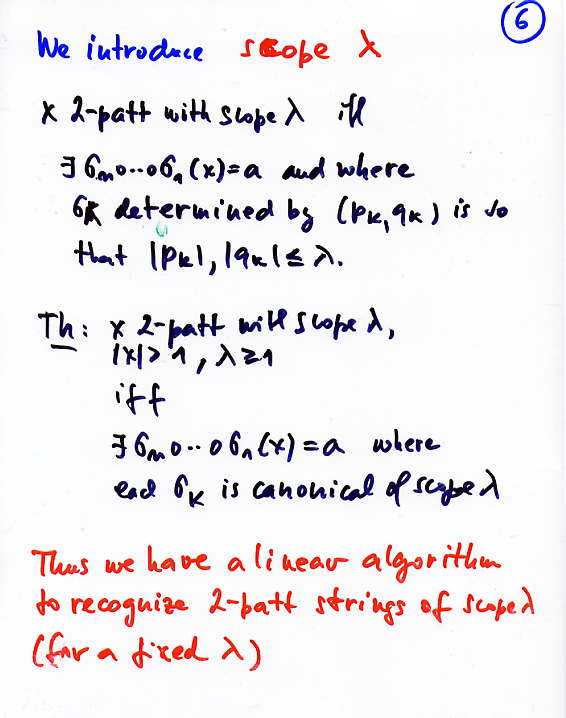 6
We introduce scope λ
x 2-patt with scope λ iff
∃ σₘ∘··∘σ₁(x)=a and where
σₖ determined by (pₖ,qₖ) is so
that |pₖ|,|qₖ|≤λ.
Th: x 2-patt with scope λ,
|x|>1, λ≥1
iff
∃ σₘ∘··∘σ₁(x)=a where
each σₖ is canonical of scope λ
Thus we have a linear algorithm
to recognize 2-patt strings of scope λ
(for a fixed λ)